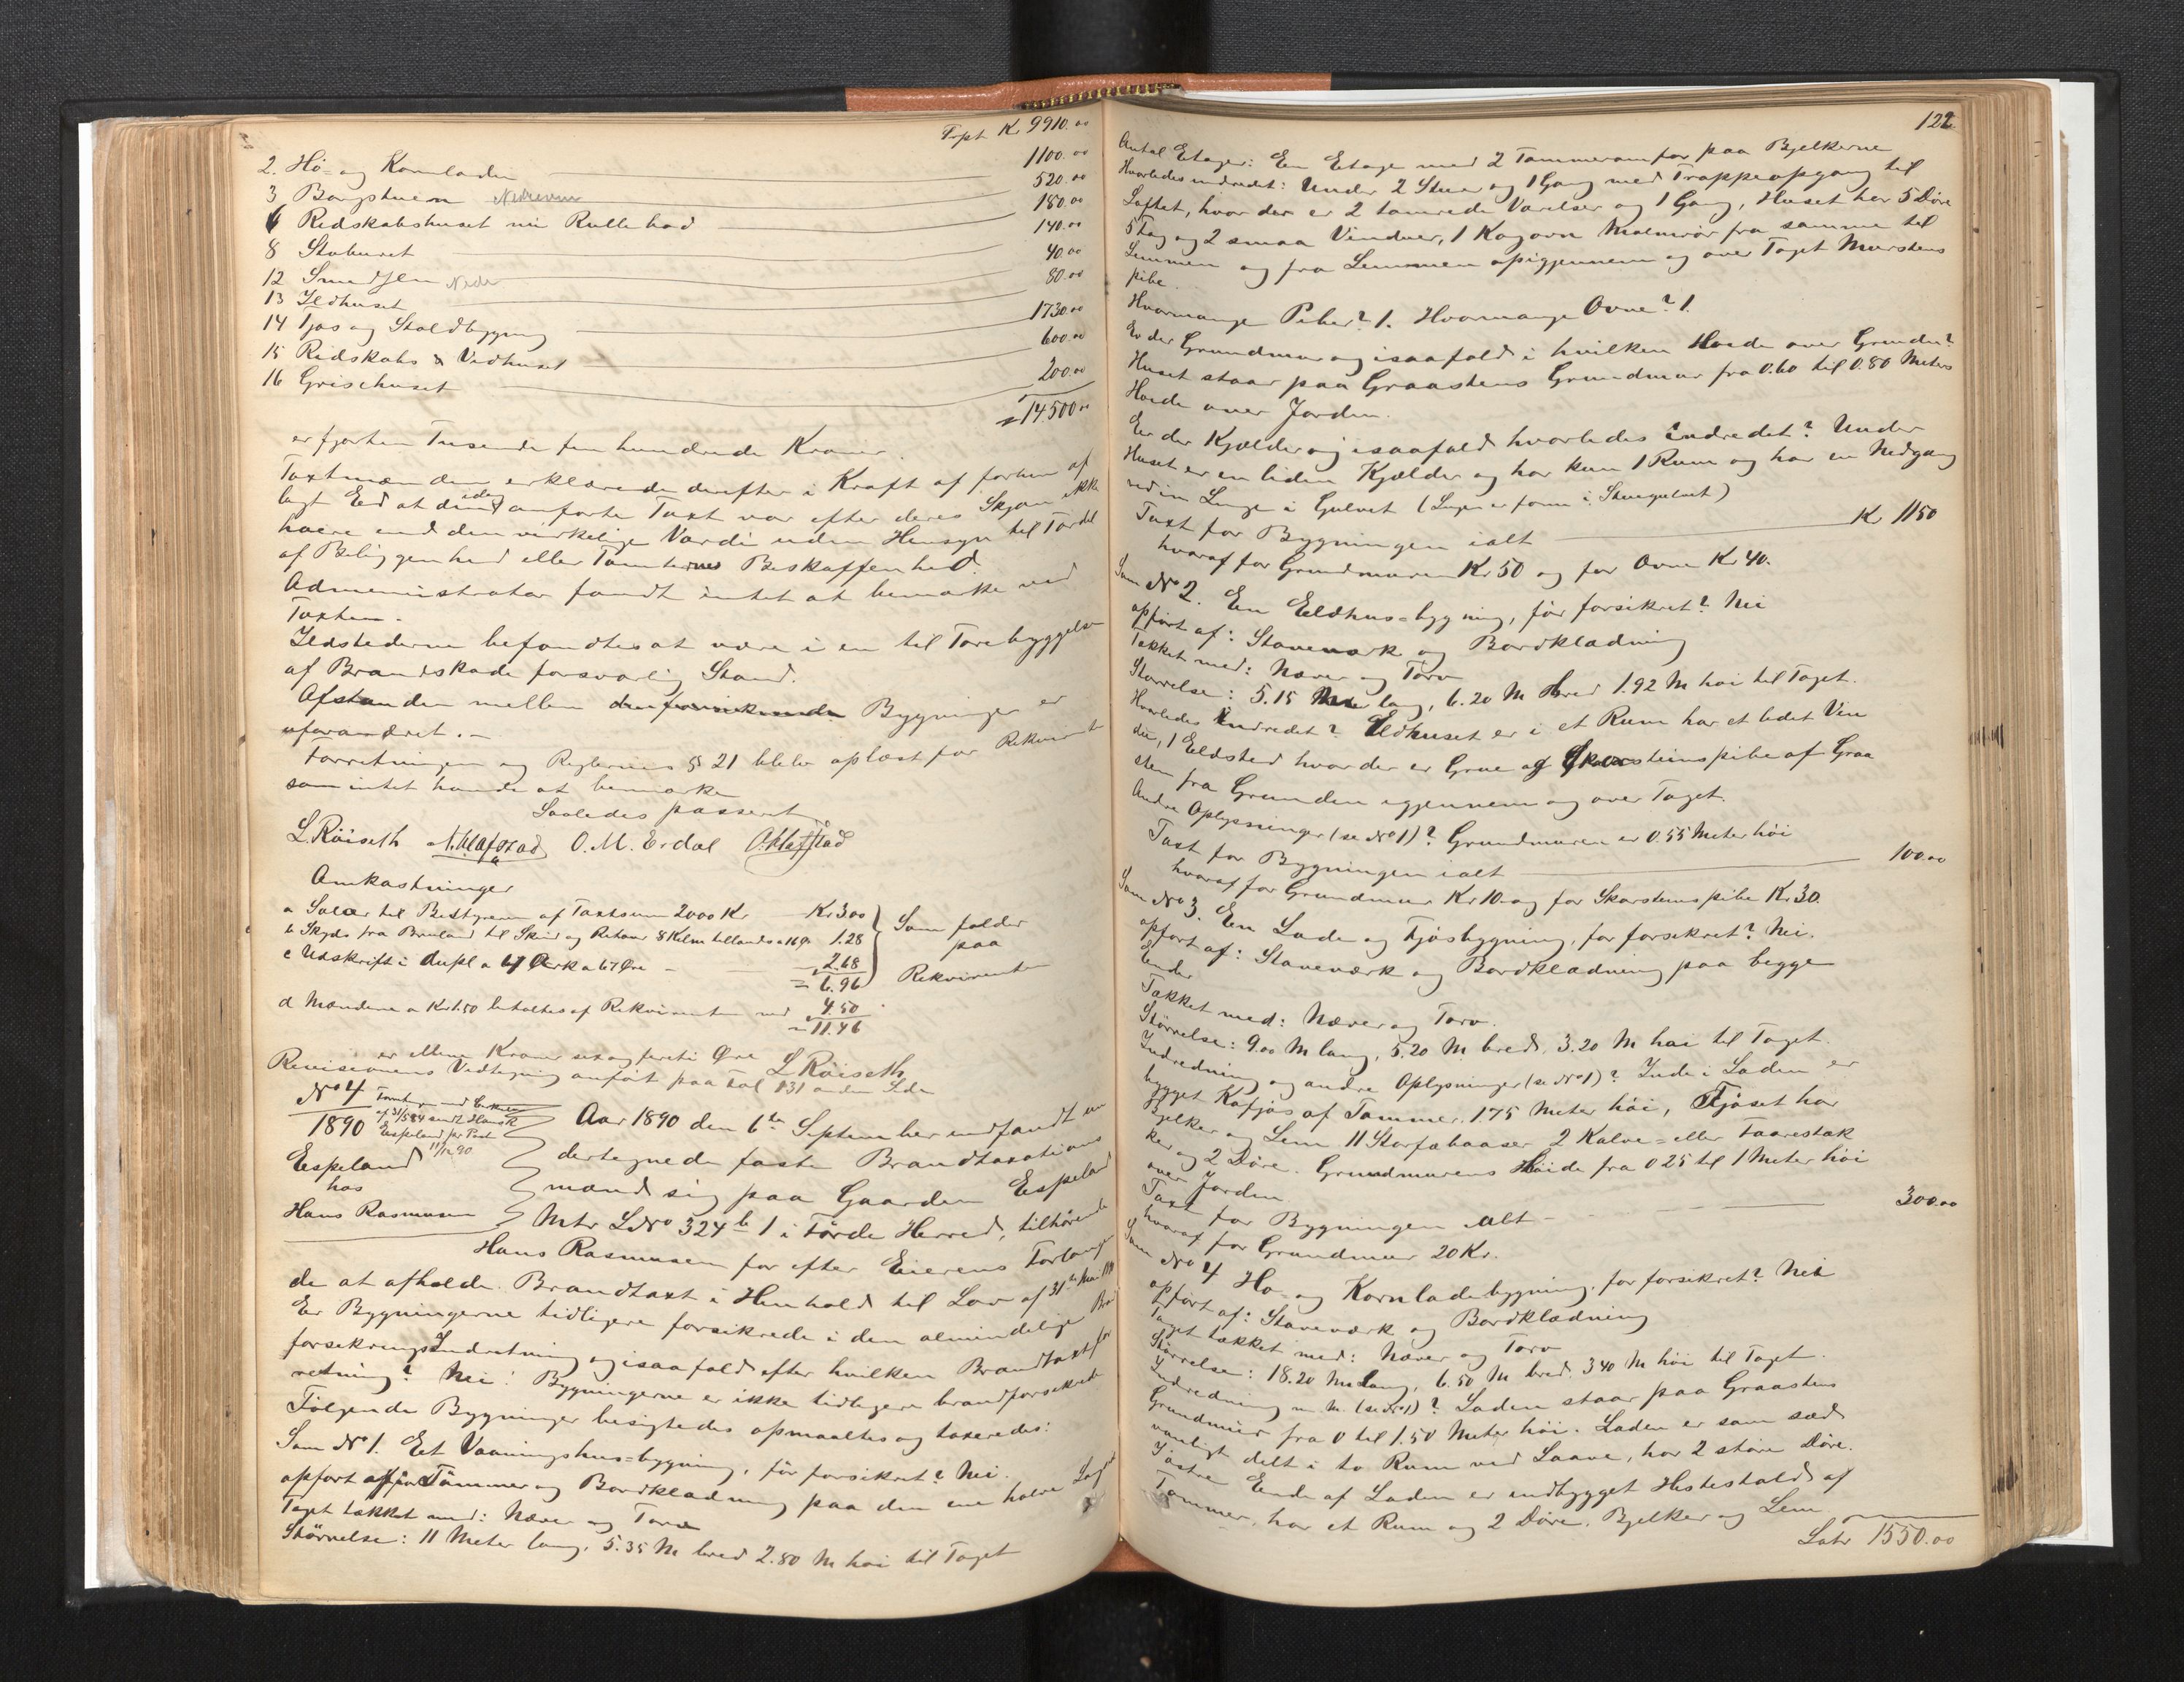 Trpt Kr 9910.00
2. Hö- og Kornladen 1100.00
3 Borgstuen Nedreven 520.00
6 Redskabshuset nu Rullebod 180.00
8 Stoburet 140.00
12 Smedjen Neder 40.00
13 Ildhuset 80.00
14 Fjös og Staldbygning 1730.00
15 Redskabs & Vedhuset 600.00
16 Grisehuset 200.00
= 14500.00
er fjorten Tusende fem hundrede Kroner.
Taxtmændene erklærede derefter i Kraft af forhen af
lagt Ed at den idag anførte Taxt var efter deres Skjön ikke
høiere end den virkelige Værdi uden Hensyn til Fordel
af Beliggenhed eller Tomternes Beskaffenhed.
Administrator fandt intet at bemærke ved
Taxten.
Ildstederne befandtes at være i en til Forebyggelse
af Brandskade forsvarlig Stand.
Afstanden mellem Bygninger er
uforandret. -
Forretningen og Reglernes § 21 blev oplæst for Rekvirent
som intet havde at bemærke
Saaledes passeret
L. Röiseth N. Klafstad O. M. Erdal O. Hafstad
Omkostninger
a Salær til Bestyreren af Taxtsum 2000 Kr - Kr 3.00
b Skyds fra Bruland til Skei og Retour 8 Kilm tillands a 16 Ør 1.28
c Udskrift i dupl a 4 Ark a 67 Øre - 2.68
= 6.96
Som falder
paa
Rekvirenten
d Mændene a Kr 1.50 betaltes af Rekvirenten med 4.50
= 11.46
er elleve Kroner sex og firti Øre L Röiseth
Revisionens Vedtegning anfört paa Fol 131 anden Side
No 4
1890
Espeland
hos
Hans Rasmusen
af 31/5 84 sendt Hans R
Espeland pr Post
11/12 90.
Aar 1890 den 6te September indfandt un
dertegnede faste Brandtaxations
mænd sig paa Gaarden Espeland
Mtr L No 324 b 1 i Förde Herred, tilhörende
Hans Rasmusen for efter Eierens Forlangen
de at afholde Brandtaxt i Henhold til Lov af 31te Mai
Er Bygningerne tidligere forsikrede i den almindelige Bra
forsekrings Indretning og isaafald efter hvilken Brandtaxtfor
retning? Nei! Bygningerne er ikke tidligere brandforsekret
Følgende Bygninger besigtedes opmaaltes og taxeredes:
Som No 1. Eet Vaaningshus-bygning, før forsikret? Nei.
opført af Tömmer og Bordklædning paa den ene halve
Taget tækket med: Næver og Torv
Störrelse: 11 Meter lang, 5.35 M bred 2.80 M höi til Taget
122
Antal Etager: En Etage med 2 Tømmeromfar paa Bjelkerne
Hvorledes indredet: Under 2 Stuer og 1 Gang med Trappeopgang til
Loftet, hvor der er 2 tömrede Værelser og 1 Gang, Huset har 5 Döre
5 Fag og 2 smaa Vinduer, 1 Kogovn Malmrör fra samme til
Lemmen og fra Lemmen opigjennem og over Taget Murstens
pibe.
Hvormange Piber? 1. Hvormange Ovne? 1.
Er der Grundmur og isaafald i hvilken Høide over Grunden?
Huset staar paa Graastens Grundmur fra 0.60 til 0.80 Meters
Høide over Jorden.
Er der Kjælder og isaafald hvorledes indredet? Under
Huset er en liden Kjælder og har kun 1 Rum og har en Nedgang
ved en Lunge i Gulvet (Lugen er form i Stuegulvet)
Taxt for Bygningen ialt Kr 1150
hvoraf for Grundmuren Kr 50 og for Ovne Kr 40.
Som No 2. En Eeldhus-bygning, för forsikret? Nei
opfört af: Staveværk og Bordklædning
Tækket med: Næver og Törv
Størrelse: 5.15 Meter lang, 6.20 M bred 1.92 M höi til Taget.
Hvorledes indredet? Eldhuset er i et Rum har et lidet Vin
due, 1 Eeldsted hvor der er Grue og Skorsteinspibe af Graa
sten fra Grunden igjennem og over Taget.
Andre Oplysninger (se No 1)? Grundmuren er 0.55 Meter höi
Taxt for Bygningen ialt 100.00
hvoraf for Grundmur Kr 10 og for Skorstenspibe Kr 30.
Som No 3. En Lade og Fjösbygning, för forsekret? Nei.
opfört af: Staveværk og Bordklædning paa begge
Ender
Tækket med: Næver og Torv.
Störrelse: 9.00 M lang, 5.20 M bred, 3.20 M höi til Taget.
Indredning og andre Oplysninger (se No 1)? Inde i Laden er
bygget Kofjös af Tömmer, 1.75 Meter höi, Fjöset har
Bjelker og Lem 11 Storfebaaser 2 Kalve- eller Faarestak
ker og 2 Döre. Grundmurens Höide fra 0.25 til 1 Meter höi
over Jorden
Taxt for Bygningen ialt - 300.00
hvoraf for Grundmur 20 Kr.
Som No 4 Hö- og Kornladebygning, för forsikret? Nei
opfört af: Staveværk og Bordklædning
Taget tækket med: Næver og Torv
Störrelse: 18.20 M Lang, 6.50 M bred 3.40 M höi til Taget.
Indredning m. m. (se No 1)? Laden staar paa Graastens
Grundmur fra 0 til 1.50 Meter höi. Laden er som sæd
vanligt delt i to Rum ved Laave, har 2 store Döre.
I østre Ende af Laden er indbygget Hestestald af
Tömmer, har et Rum og 2 Döre. Bjelker og Lem
Latr 1550.00